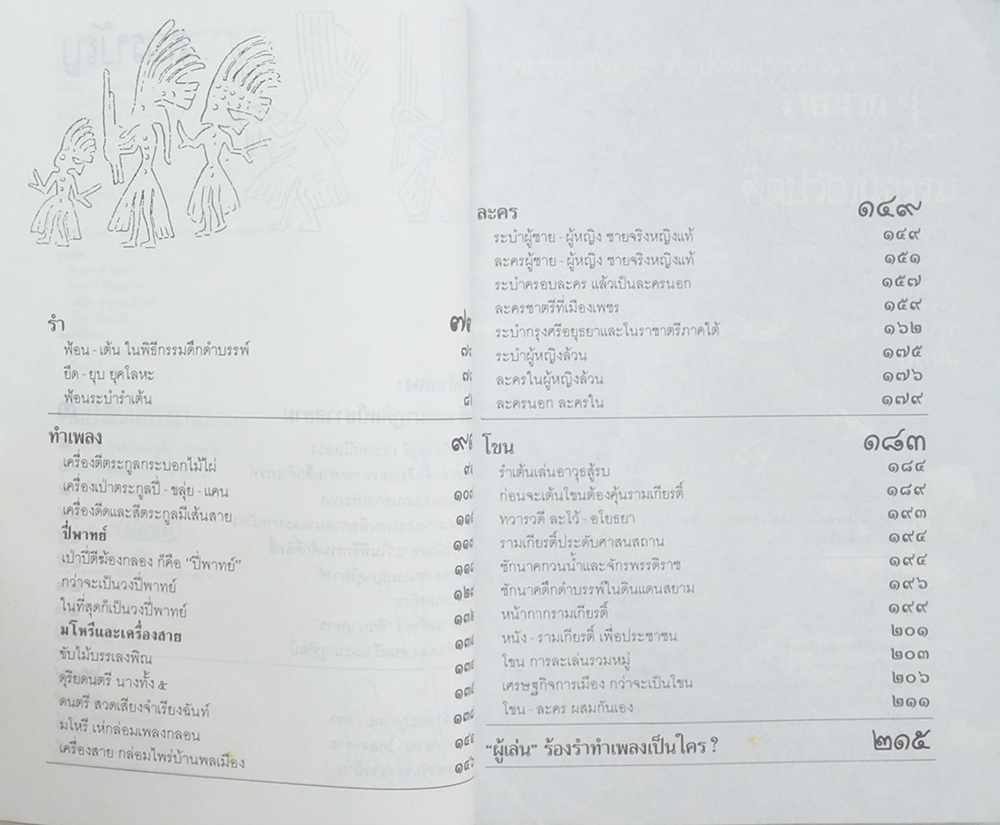 รำ
ฟ้อน - เต้น ในพิธีกรรมดึกดำบรรพ์
ยืด - ยุบ ยุคโลหะ
ฟ้อนระบำรำเต้น
ทำเพลง
เครื่องตีตระกูลกระบอกไม้ไผ่
เครื่องเป่าตระกูลปี่ - ขลุ่ย - แคน
เครื่องดีดและสีตระกูลมีเส้นสาย
ปี่พาทย์
เป่าปี่ตีฆ้องกลอง ก็คือ “ปี่พาทย์”
กว่าจะเป็นวงปี่พาทย์
ในที่สุดก็เป็นวงปี่พาทย์
มโหรีและเครื่องสาย
ขับไม้บรรเลงพิณ
ดุริยดนตรี นางทั้ง ๕
ดนตรี สวดเสียงจำเรียงฉันท์
มโหรี เห่กล่อมเพลงกลอน
เครื่องสาย กล่อมไพร่บ้านพลเมือง
ละคร ๑๔๙
ระบำผู้ชาย - ผู้หญิง ชายจริงหญิงแท้ ๑๔๙
ละครผู้ชาย - ผู้หญิง ชายจริงหญิงแท้ ๑๕๑
ระบำครอบละคร แล้วเป็นละครนอก ๑๕๗
ละครชาตรีที่เมืองเพชร ๑๕๙
ระบำกรุงศรีอยุธยาและโนราชาตรีภาคใต้ ๑๖๒
ระบำผู้หญิงล้วน ๑๗๕
ละครในผู้หญิงล้วน ๑๗๖
ละครนอก ละครใน ๑๗๙
โขน ๑๘๓
รำเต้นเล่นอาวุธสู้รบ ๑๘๔
ก่อนจะเต้นโขนต้องคุ้นรามเกียรติ์ ๑๘๙
ทวารวดี ละโว้ - อโยธยา ๑๙๓
รามเกียรติ์ประดับศาสนสถาน ๑๙๔
ชักนาคกวนน้ำและจักรพรรดิราช ๑๙๔
ชักนาคดึกดำบรรพ์ในดินแดนสยาม ๑๙๖
หน้ากากรามเกียรติ์ ๑๙๙
หนัง - รามเกียรติ์ เพื่อประชาชน ๒๐๑
โขน การละเล่นรวมหมู่ ๒๐๓
เศรษฐกิจการเมือง กว่าจะเป็นโขน ๒๐๖
โขน - ละคร ผสมกันเอง ๒๑๑
“ผู้เล่น” ร้องรำทำเพลงเป็นใคร ? ๒๑๕